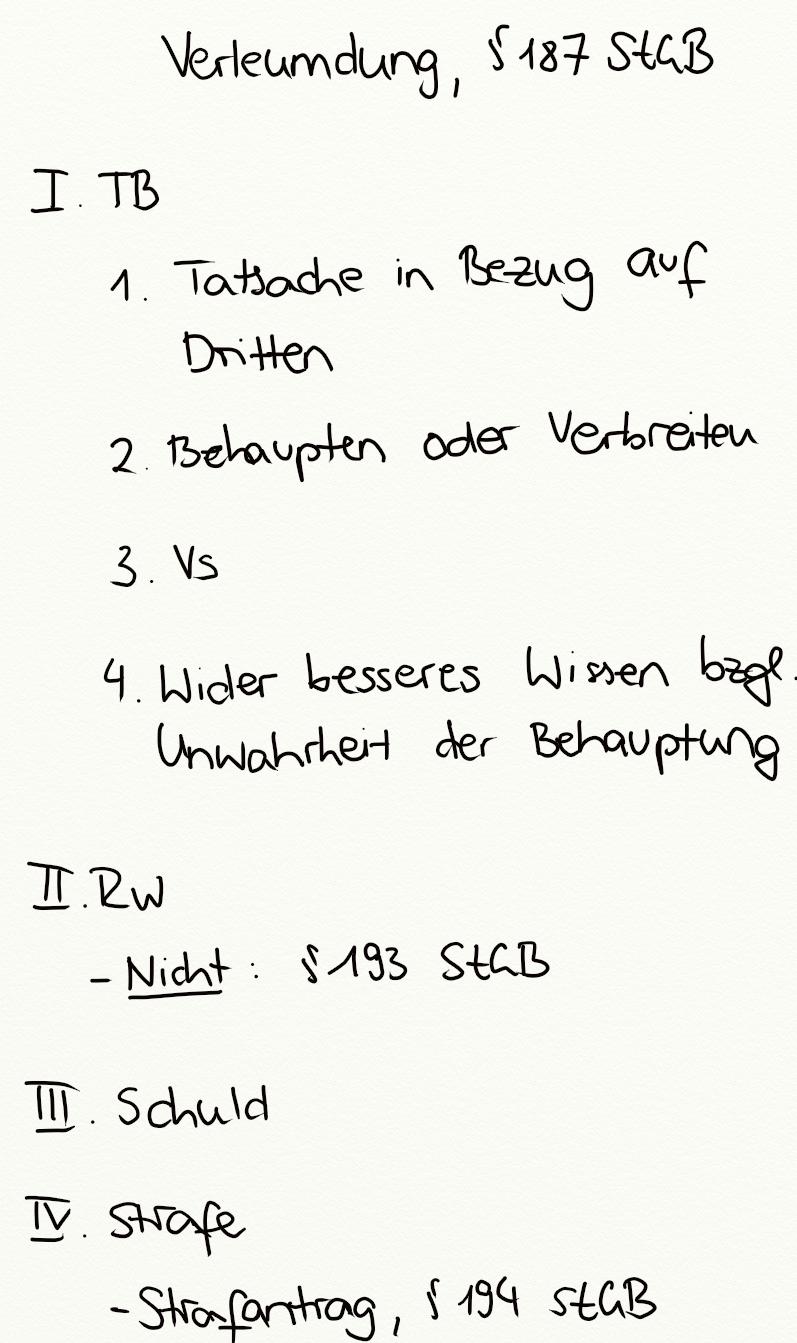 Verleumdung, § 187 StGB
I. TB
1. Tatsache in Bezug auf
Dritten
2. Behaupten oder Verbreiten
3. Vs
4. Wider besseres Wissen bzgl.
Unwahrheit der Behauptung
II. RW
- Nicht: § 193 StGB
III. Schuld
IV. Strafe
- Strafantrag, § 194 StGB